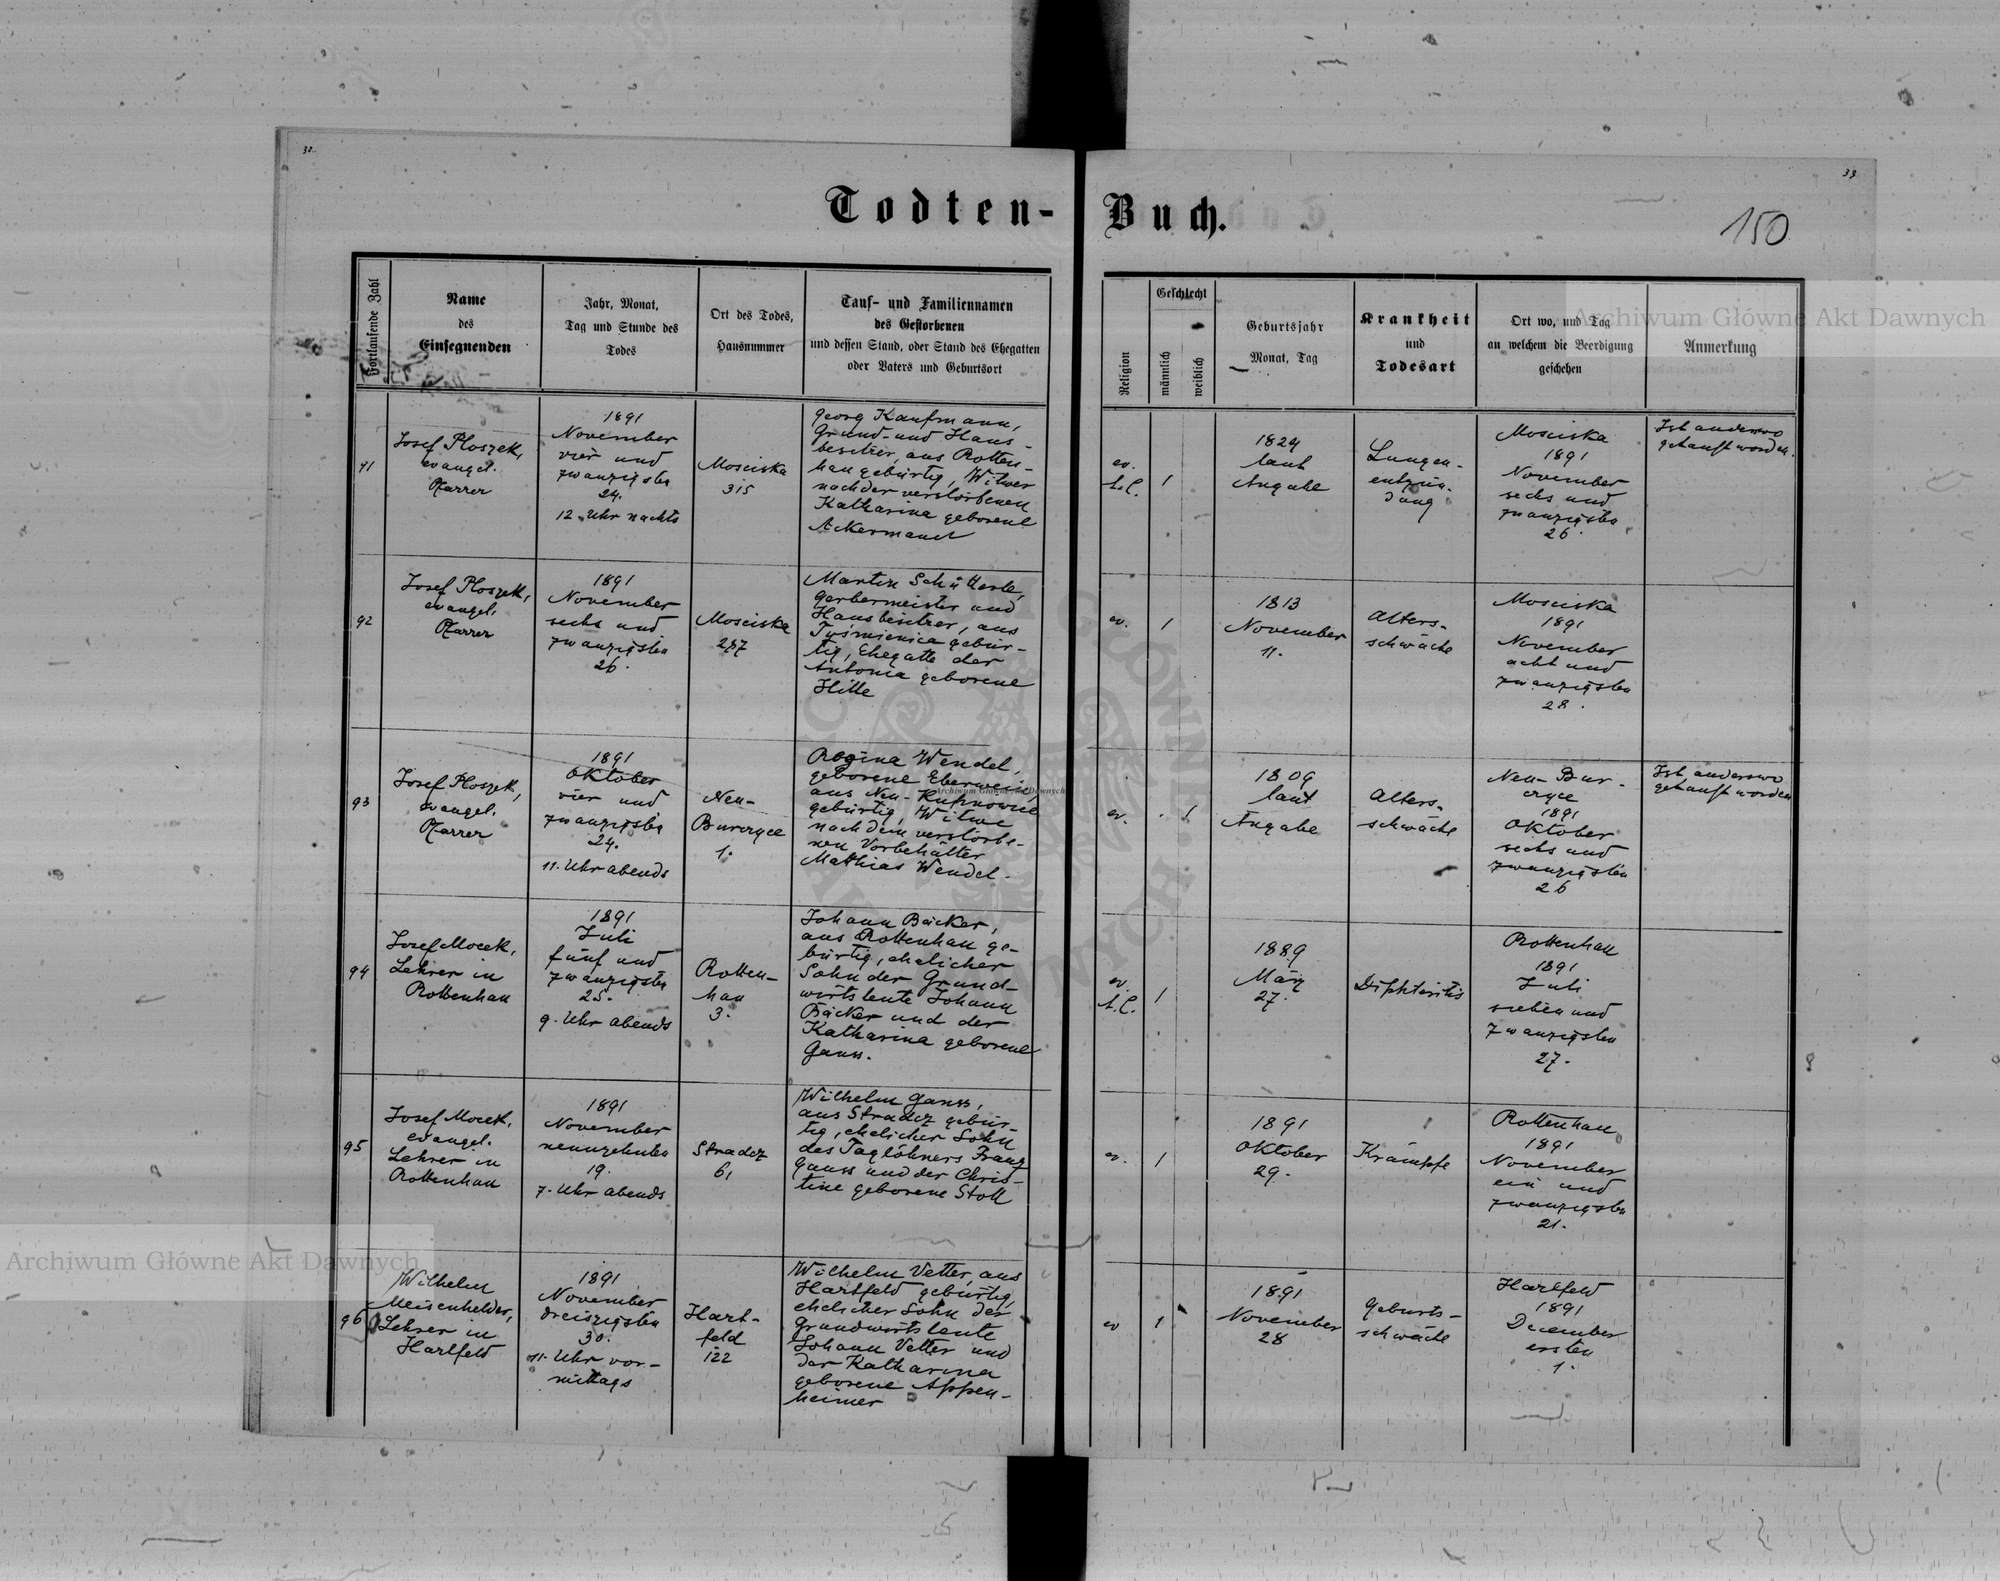 32.
33
Todten- Buch.
150
Fortlaufende Zahl
Name
des
Einsegnenden
Jahr, Monat,
Tag und Stunde des
Todes
Ort des Todes,
Hausnummer
Tauf- und Familiennamen
des Gestorbenen
und dessen Stand, oder Stand des Ehegatten
oder Vaters und Geburtsort
Religion
Geschlecht
männlich
weiblich
Geburtsjahr
Monat, Tag
Krankheit
und
Todesart
Ort wo, und Tag
an welchem die Beerdigung
geschehen
Anmerkung
91
Josef Ploszek,
evangel.
Pfarrer
1891
November
vier und
zwanzigsten
24.
12. Uhr nachts
Mosciska
315
Georg Kaufmann,
Grund- und Haus-
besitzer, aus Rotten-
han gebürtig, Witwer
nach der verstorbenen
Katharina geborene
Ackermann
ev.
A.C.
1
1824
laut
Angabe
Lungen-
entzün-
dung
Mosciska
1891
November
sechs und
zwanzigsten
26.
Ist anderswo
getauft worden.
92
Josef Ploszek,
evangel.
Pfarrer
1891
November
sechs und
zwanzigsten
26.
Mosciska
287
Martin Schütterle,
Gerbermeister und
Hausbesitzer, aus
Tyśmienica gebür-
tig, Ehegatte der
Antonia geborene
Hille
ev.
1
1813
November
11.
Alters-
schwäche
Mosciska
1891
November
acht und
zwanzigsten
28.
93
Josef Ploszek,
evangel.
Pfarrer
1891
Oktober
vier und
zwanzigsten
24.
11. Uhr abends
Neu-
Burczyce
1.
Rogina Wendel,
geborene Eberwein,
aus Neu-Kupnowice
gebürtig, Witwe
nach dem verstorbe-
nen Vorbehälter
Matthias Wendel.
ev.
1
1809
laut
Angabe
Alters-
schwäche
Neu-Bur-
czyce
1891
Oktober
sechs und
zwanzigsten
26
Ist anderswo
getauft worden
94
Josef Mocek,
Lehrer in
Rottenhan
1891
Juli
fünf und
zwanzigsten
25.
9. Uhr abends
Rotten-
han
3.
Johann Bäcker,
aus Rottenhan ge-
bürtig, ehelicher
Sohn der Grund-
wirtsleute Johann
Bäcker und der
Katharina geborene
Gauss.
ev.
A.C.
1
1889
März
27.
Diphteritis
Rottenhan
1891
Juli
sieben und
zwanzigsten
27.
95
Josef Mocek,
evangel.
Lehrer in
Rottenhan
1891
November
neunzehnten
19.
7. Uhr abends
Stradcz
61
Wilhelm Gauss,
aus Stradcz gebür-
tig, ehelicher Sohn
des Taglöhners Franz
Gauss und der Chris-
tine geborene Stoll
ev.
1
1891
Oktober
29.
Krämpfe
Rottenhan
1891
November
ein und
zwanzigsten
21.
96
Wilhelm
Meisenhelder,
Lehrer in
Hartfeld
1891
November
dreiszigsten
30.
11. Uhr vor-
mittags
Hart-
feld
122
Wilhelm Vetter, aus
Hartfeld gebürtig,
ehelicher Sohn der
Grundwirtsleute
Johann Vetter und
der Katharina
geborene Appen-
heimer
ev
1
1891
November
28
Geburts-
schwäche
Hartfeld
1891
December
ersten
1.
Archiwum Główne Akt Dawnych
Archiwum Główne Akt Dawnych
Archiwum Główne Akt Dawnych